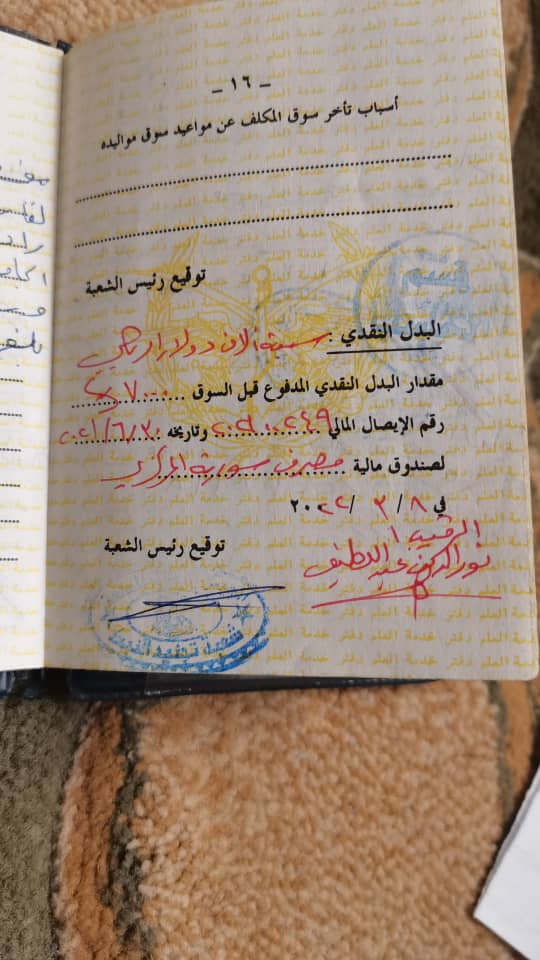 - ١٦ -
أسباب تأخر سوق المكلف عن مواعيد سوق مواليده
توقيع رئيس الشعبة
البدل النقدي : سبعة آلاف دولار امريكي
مقدار البدل النقدي المدفوع قبل السوق ٧٠٠٠
رقم الإيصال المالي وتاريخه ٢٠٢١/٦/٣٠
لصندوق مالية مصرف سورية المركزي
في ٨ / ٣ / ٢٠٢٢
توقيع رئيس الشعبة
الرقيب ١
نور الدين عبد اللطيف
شعبة تجنيد